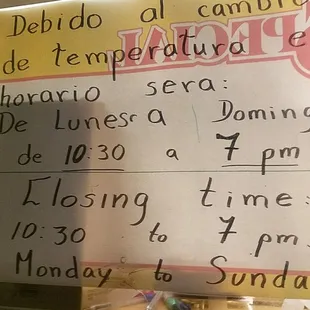 Debido al cambi
de temperatura e
horario sera:
De Lunes a Doming
de 10:30 a 7 pm
Closing time:
10:30 to 7 pm.
Monday to Sunda
SPECIAL